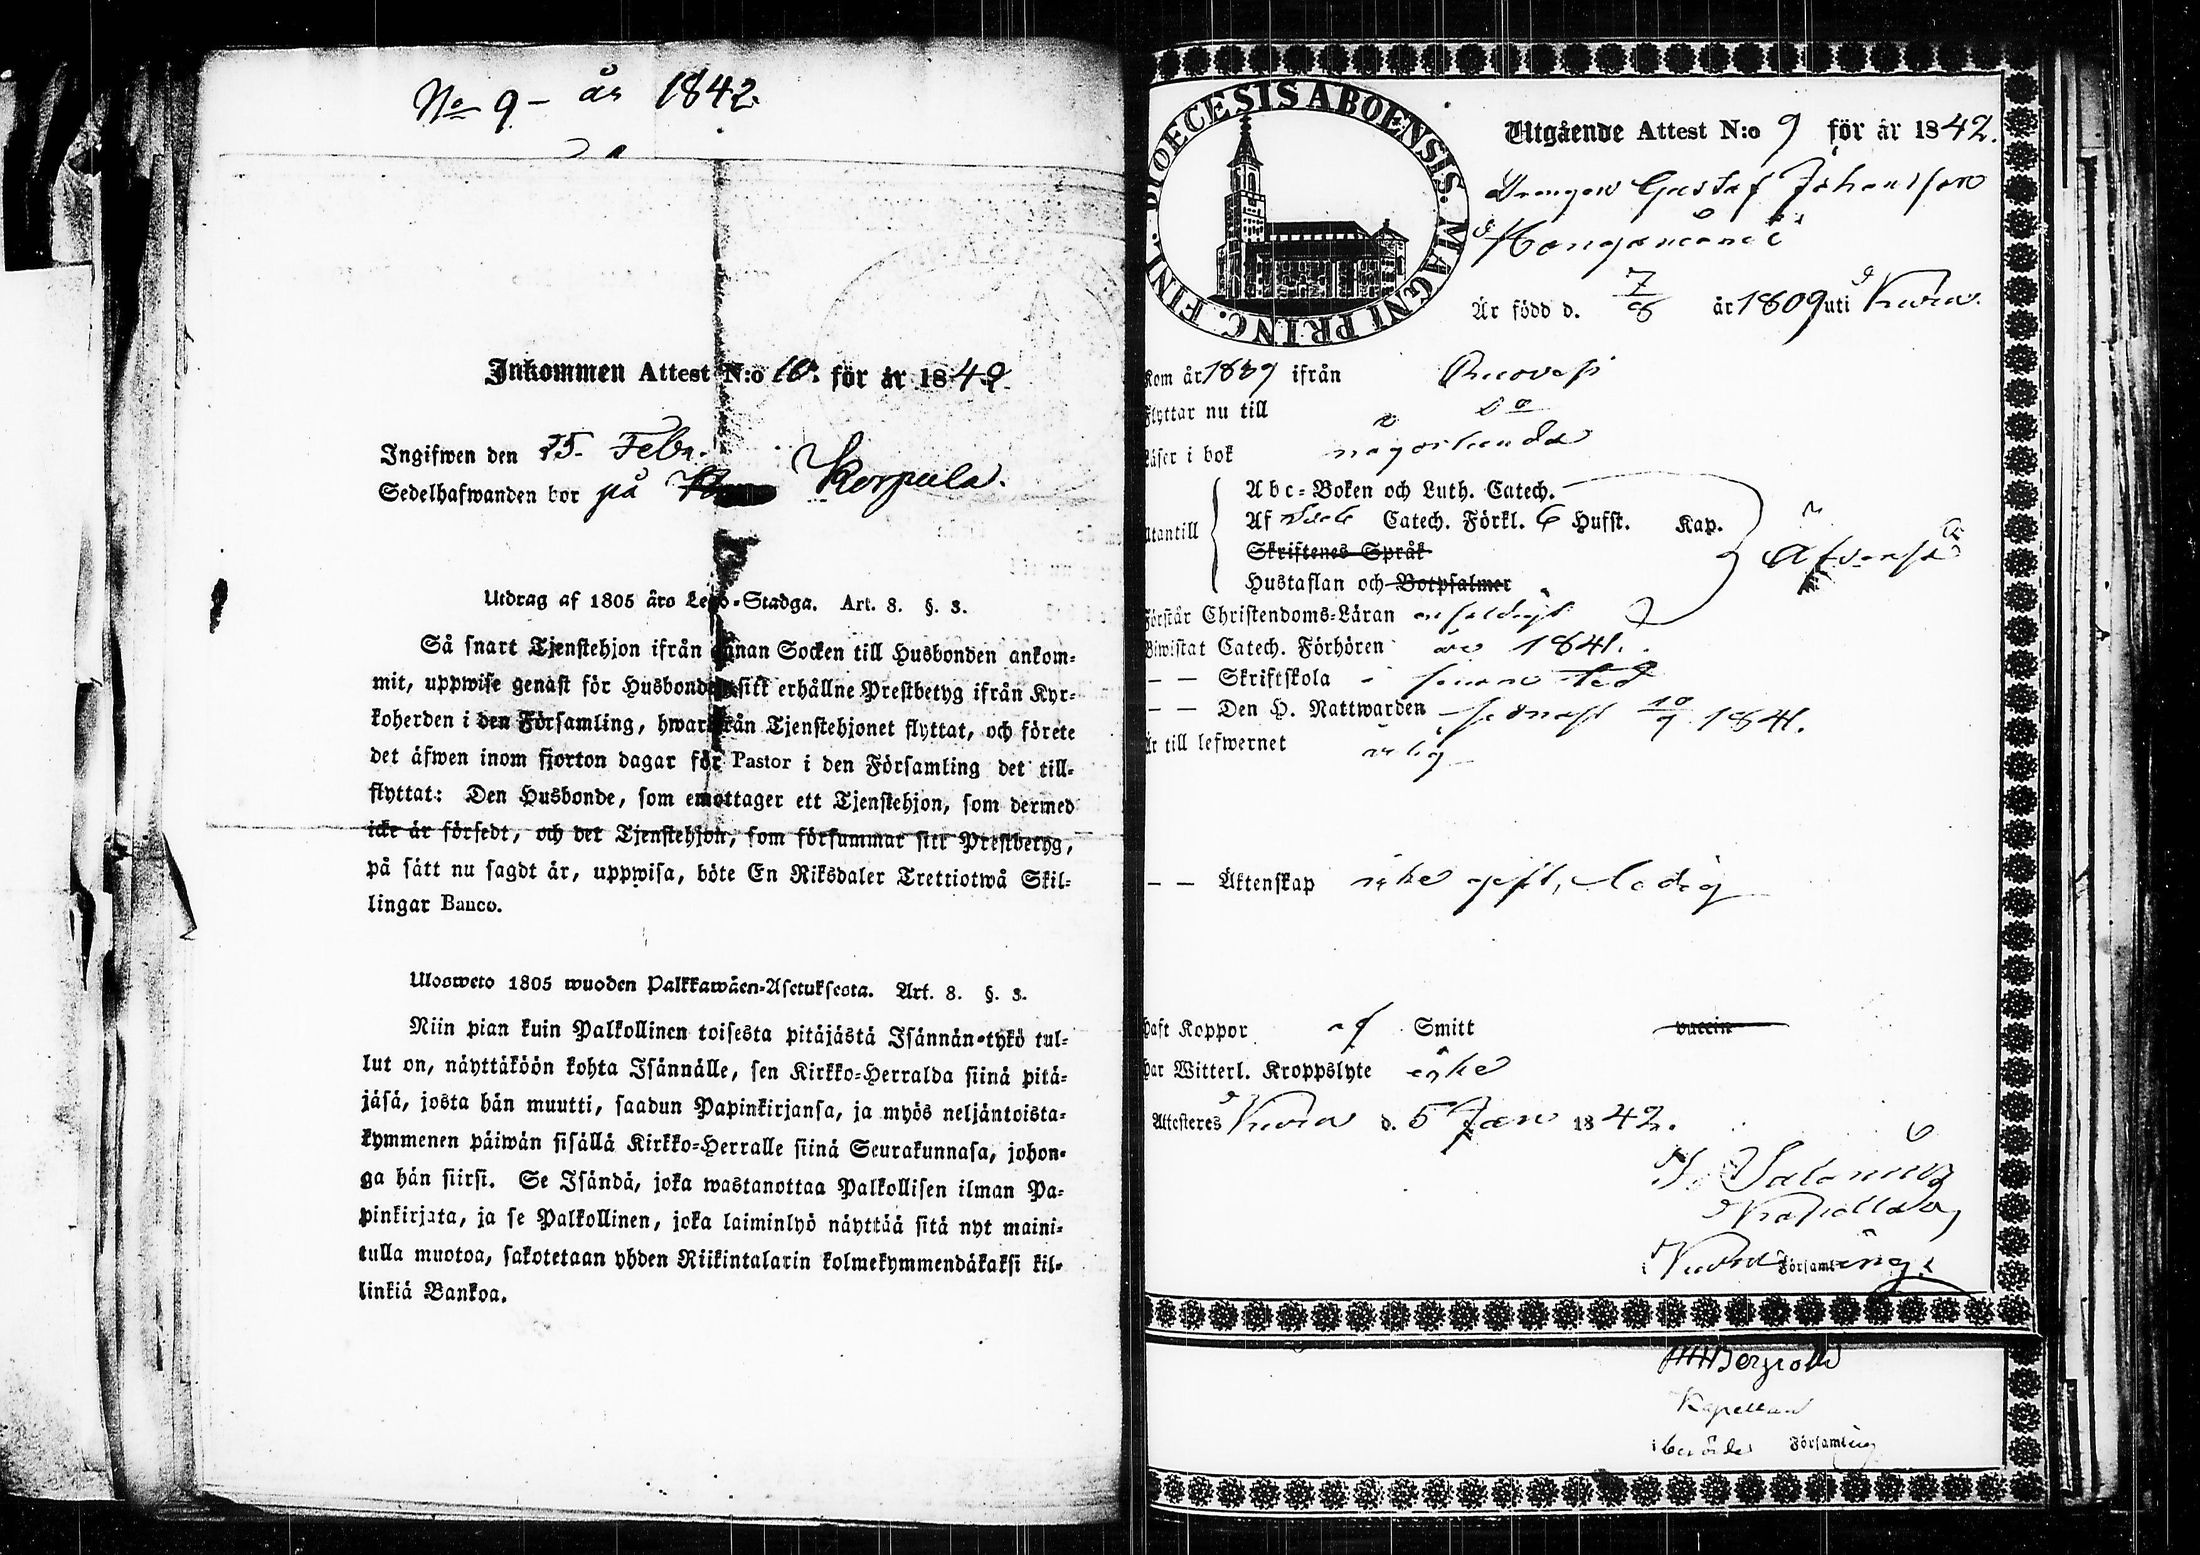 No 9 – år 1842.
Inkommen Attest N:o 10. för år 1842.
Ingifwen den 25. Febr.
Sedelhafwanden bor på Korpula.
Utdrag af 1805 års Lego-Stadga. Art. 8. §. 3.
Så snart Tjenstehjon ifrån annan Socken till Husbonden ankom-
mit, uppwise genast för Husbonden sitt erhållne Prestbetyg ifrån Kyr-
koherden i den Församling, hwarifrån Tjenstehjonet flyttat, och förete
det äfwen inom fjorton dagar för Pastor i den Församling det till-
flyttat: Den Husbonde, som emottager ett Tjenstehjon, som dermed
icke är försedt, och det Tjenstehjon, som försummar sitt Prestbetyg,
på sätt nu sagdt är, uppwisa, böte En Riksdaler Trettiotwå Skil-
lingar Banco.
Uloosweto 1805 wuoden Palkkawäen-Asetuksesta. Art. 8. §. 3.
Niin pian kuin Palkollinen toisesta pitäjästä Isännän-tykö tul-
lut on, näyttäköön kohta Isännälle, sen Kirkko-Herralda siinä pitä-
jäsä, josta hän muutti, saadun Papinkirjansa, ja myös neljäntoista-
kymmenen päiwän sisällä Kirkko-Herralle siinä Seurakunnasa, johon-
ga hän siirsi. Se Isändä, joka wastanottaa Palkollisen ilman Pa-
pinkirjata, ja se Palkollinen, joka laiminlyö näyttää sitä nyt maini-
tulla muotoa, sakotetaan yhden Riikintalarin kolmekymmendäkaksi kil-
linkiä Bankoa.
DIOECESIS ABOENSIS. MAGNI PRINC. FINL.
Utgående Attest N:o 9 för år 1842.
Drengen Gustaf Johansson
Är född d. 7/8 år 1809 uti Kuru.
Kom år 1839 ifrån Ruovesi
Flyttar nu till do
Läser i bok någorlunda
Utantill
Abc-Boken och Luth. Catech.
Af Catech. Förkl. 6 Hufst. Kap.
Skriftenes Språk
Hustaflan och Botpsalmer
Förstår Christendoms-Läran enfaldigt
Biwistat Catech. Förhören åre 1841.
– – Skriftskola
– – Den H. Nattwarden senast 10/9 1841.
Är till lefwernet ärlig
– – Äktenskap icke gift, ledig
Haft Koppor af Smitt vaccin
Har Witterl. Kroppslyte icke
Attesteres Kuru d. 5 Jan 1842.
Kapellan
Församling
Kapellan
i berörde Församling